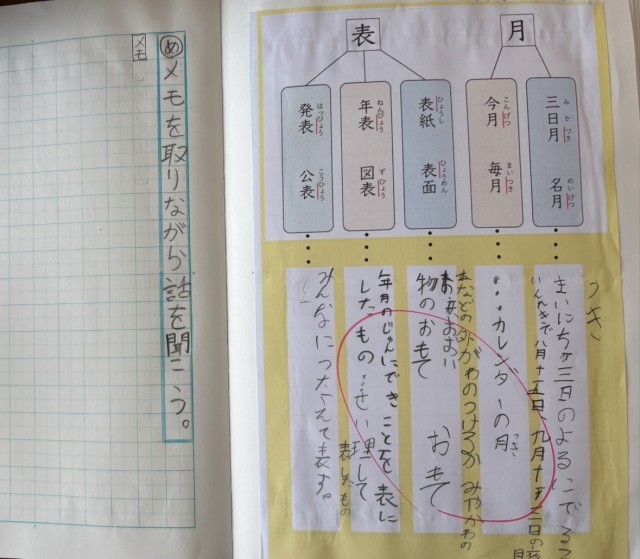 月
三日月 名月
みかづき めいげつ
今月 毎月
こんげつ まいつき
表
表紙 表面
ひょうし ひょうめん
年表 図表
ねんぴょう ずひょう
発表 公表
はっぴょう こうひょう
つき
三日のよるに
八月十五日 九月十三日の夜
カレンダーの月
つき
本などの外がわの
物のおもて おもて
年月のじゅんにできことを表に
したもの せい理して
表したもの
みんなにつたえて表す。
めメモを取りながら話を聞こう。
メモ